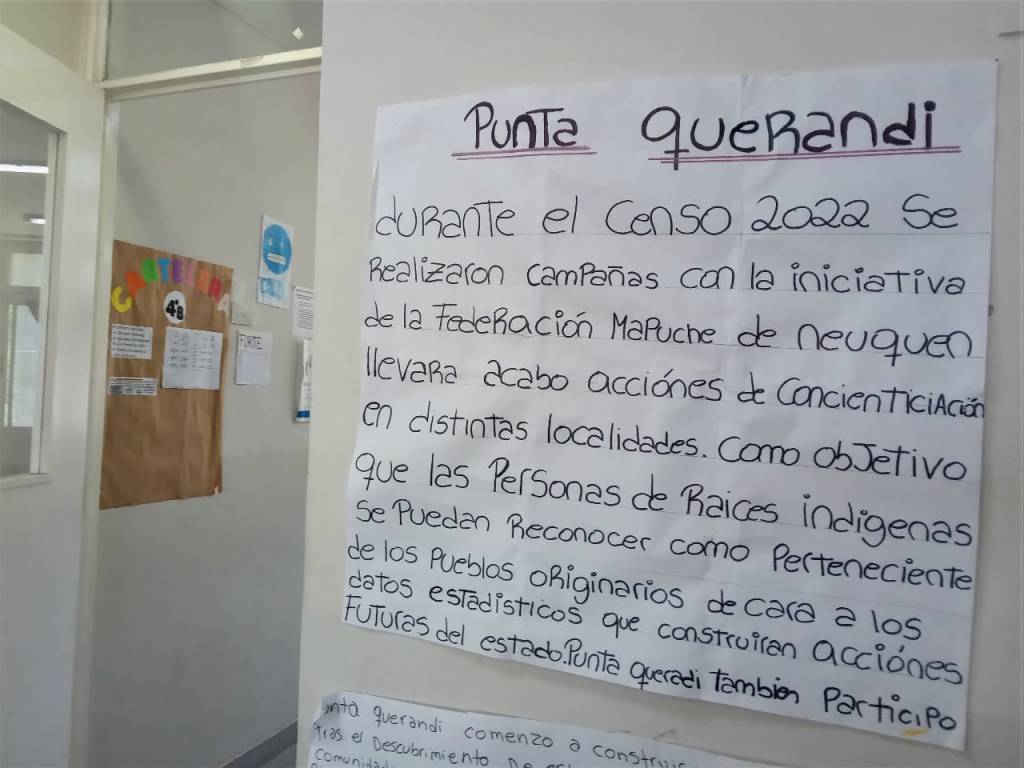 Punta Querandi
durante el Censo 2022 Se
Realizaron campañas con la iniciativa
de la Federación Mapuche de neuquen
llevara acabo acciónes de ConcienticiAción
en distintas localidades. Como obJetivo
que las Personas de Raices indigenas
se Puedan Reconocer como Perteneciente
de los Pueblos originarios de cara a los
datos estadisticos que construiran acciónes
Futuras del estado. Punta queradi Tambien Participo
unta querandi comenzo a construir
Tras el Descubrimiento De
CARTELERA
4°B